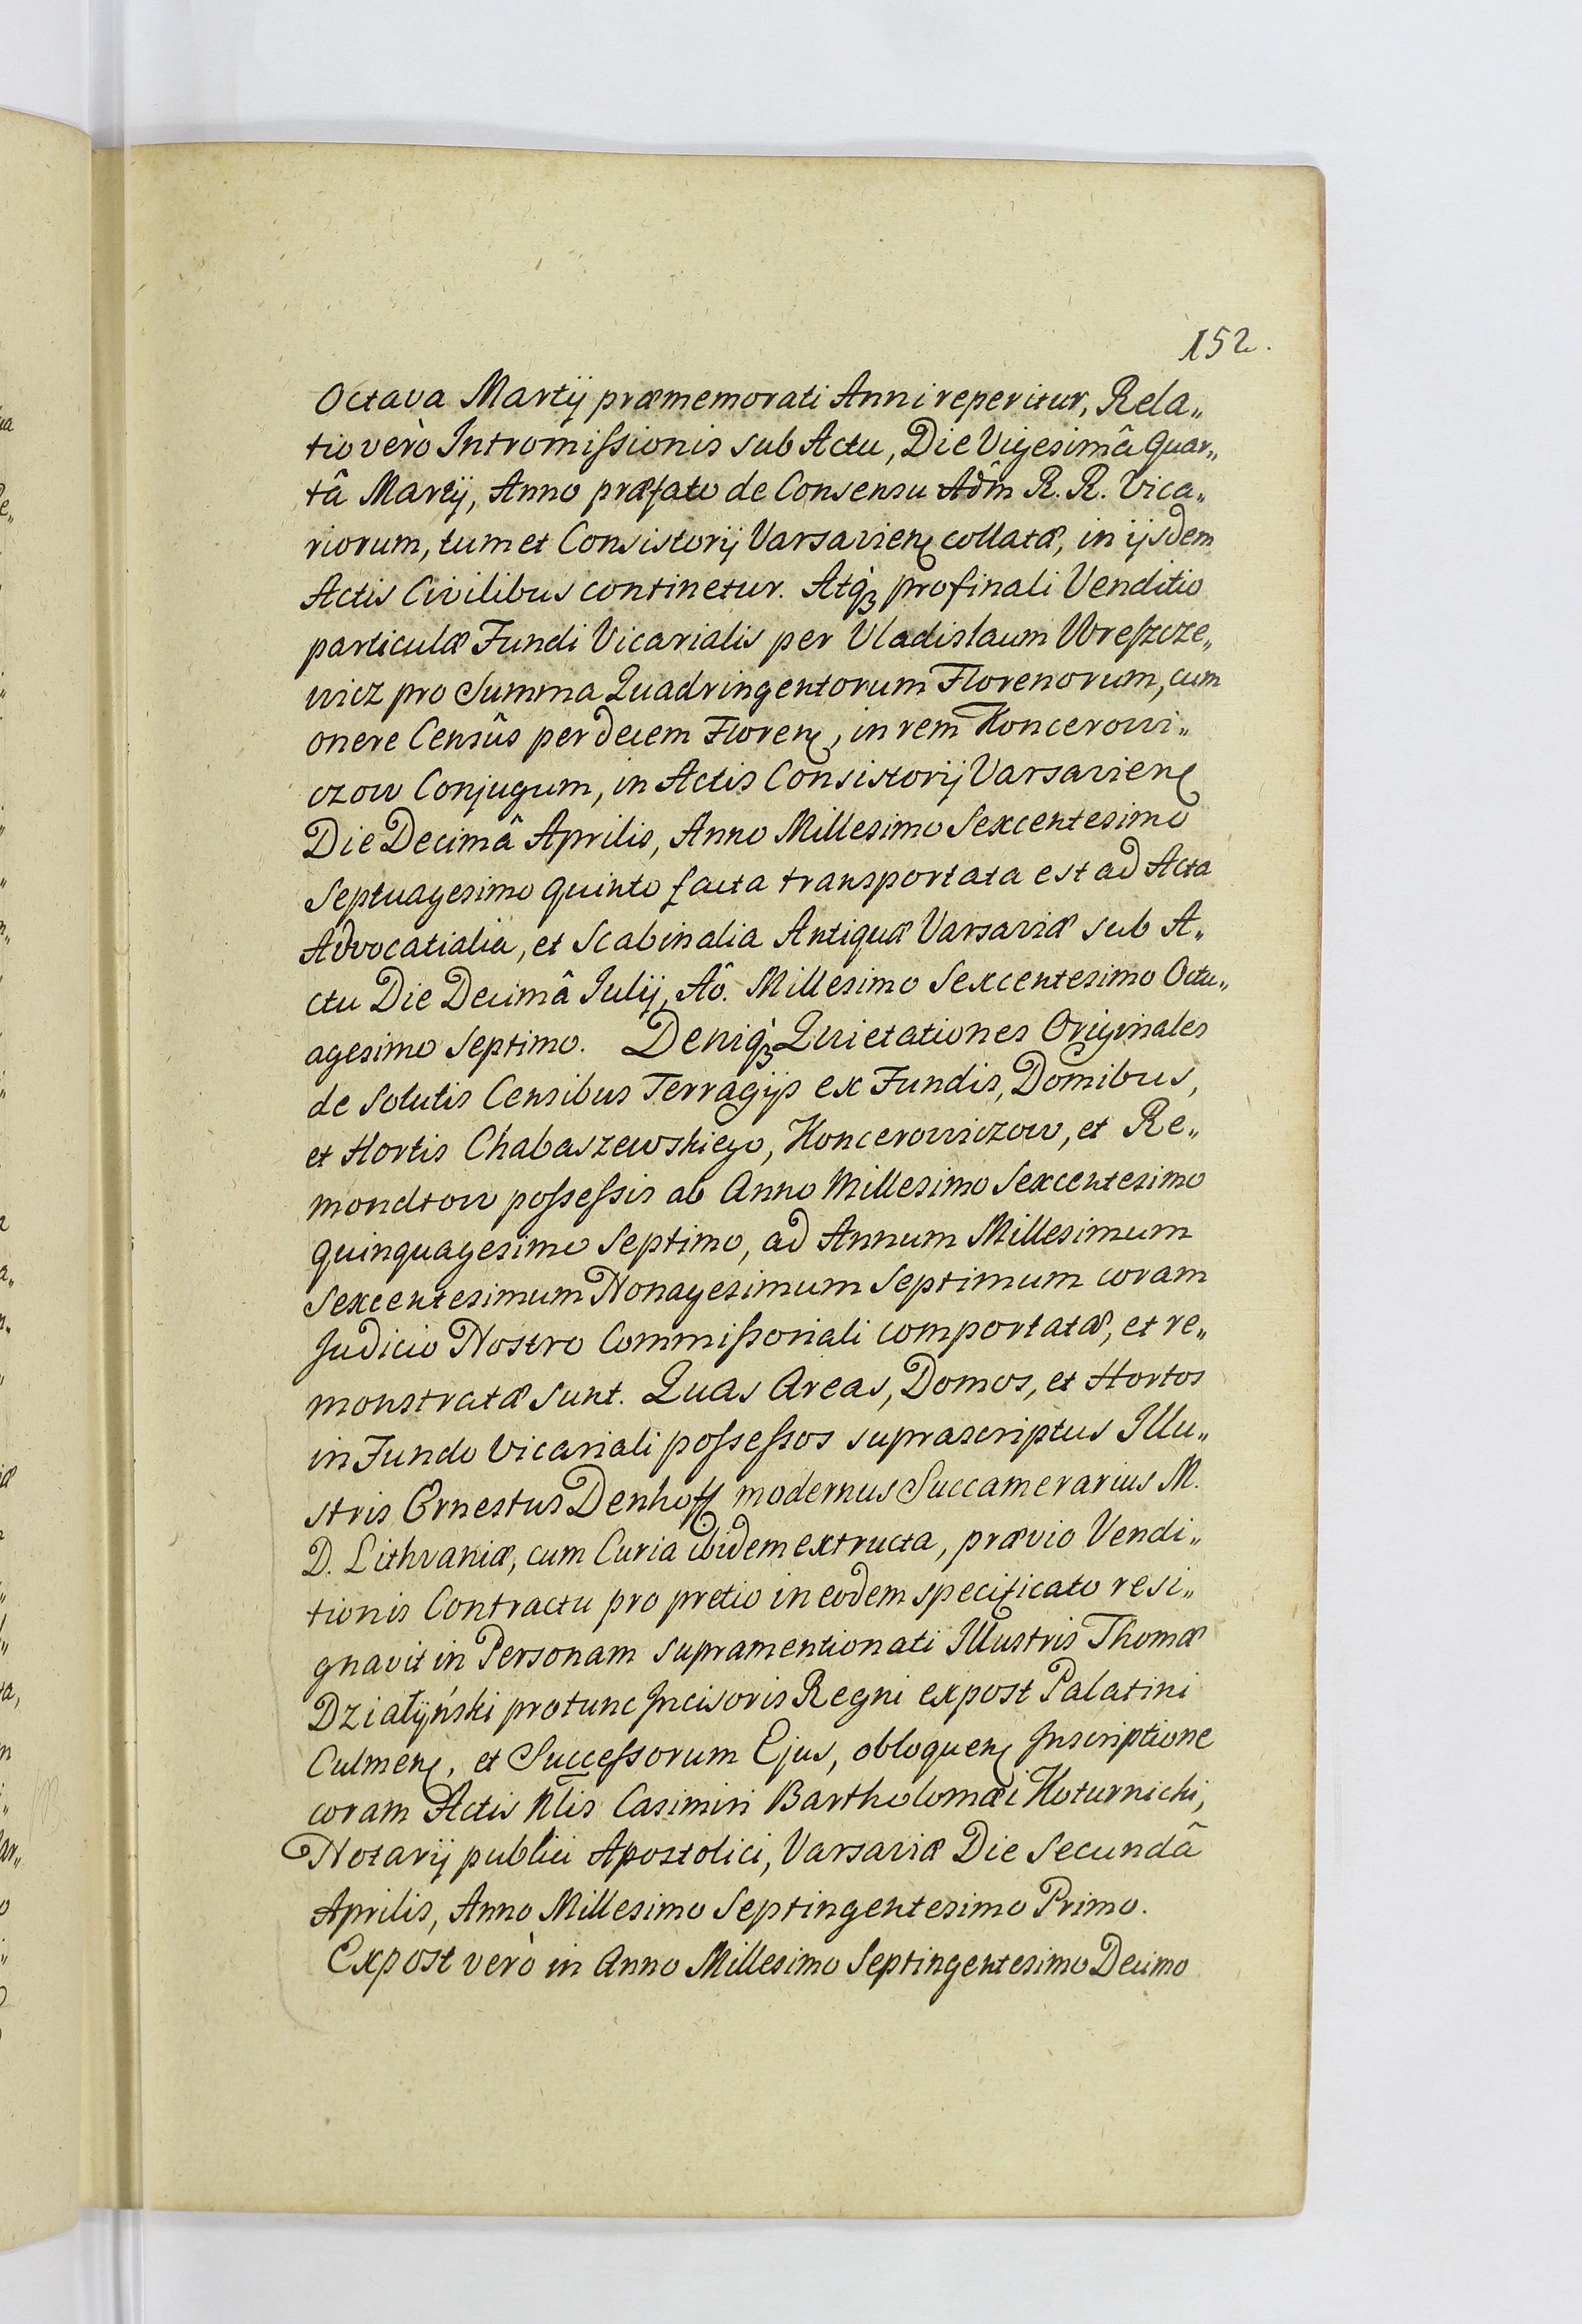 152.
Octava Martij præmemorati Anni reperitur, Rela„
tio verò Intromissionis sub Actu, Die Vigesimâ Quar„
tâ Martij, Anno præfato de Consensu Adm̂ R. R. Vica„
riorum, tum et Consistorij Varsavien collatæ, in ijsdem
Actis Civilibus continetur. Atq́ʒ pro finali Venditio
particulæ Fundi Vicarialis per Vladislaum Wreszcze„
wicz pro Summa Quadringentorum Florenorum, cum
onere Censûs per decem Floren, in rem Koncerowi„
czow Conjugum, in Actis Consistorij Varsavien
Die Decimâ Aprilis, Anno Millesimo Sexcentesimo
Septuagesimo quinto facta transportata est ad Acta
Advocatialia, et Scabinalia Antiquæ Varsaviæ sub A„
ctu Die Decimâ Julij, Aô. Millesimo Sexcentesimo Octu„
agesimo Septimo. Deniq́ʒ Quietationes Originales
de Solutis Censibus Terragijs ex Fundis, Domibus,
et Hortis Chabaszewskiego, Koncerowiczow, et Re„
mondtow possessis ab Anno Millesimo Sexcentesimo
quinquagesimo Septimo, ad Annum Millesimum
Sexcentesimum Nonagesimum Septimum coram
Judicio Nostro Commissoriali comportatæ, et re„
monstratæ sunt. Quas Areas, Domos, et Hortos
in Fundo Vicariali possessos suprascriptus Illu„
stris Ernestus Denhoff modernus Succamerarius M.
D. Lithvaniæ, cum Curia ibidem extructa, prævio Vendi„
tionis Contractu pro pretio in eodem specificato resi„
gnavit in Personam supramentionati Illustris Thomæ
Działyński protunc Incisoris Regni expost Palatini
Culmen, et Successorum Ejus, obloquen Inscriptione
coram Actis Nlis Casimiri Bartholomæi Koturnicki,
Notarij publici Apostolici, Varsaviæ Die Secundâ
Aprilis, Anno Millesimo Septingentesimo Primo.
Expost verò in Anno Millesimo Septingentesimo Decimo